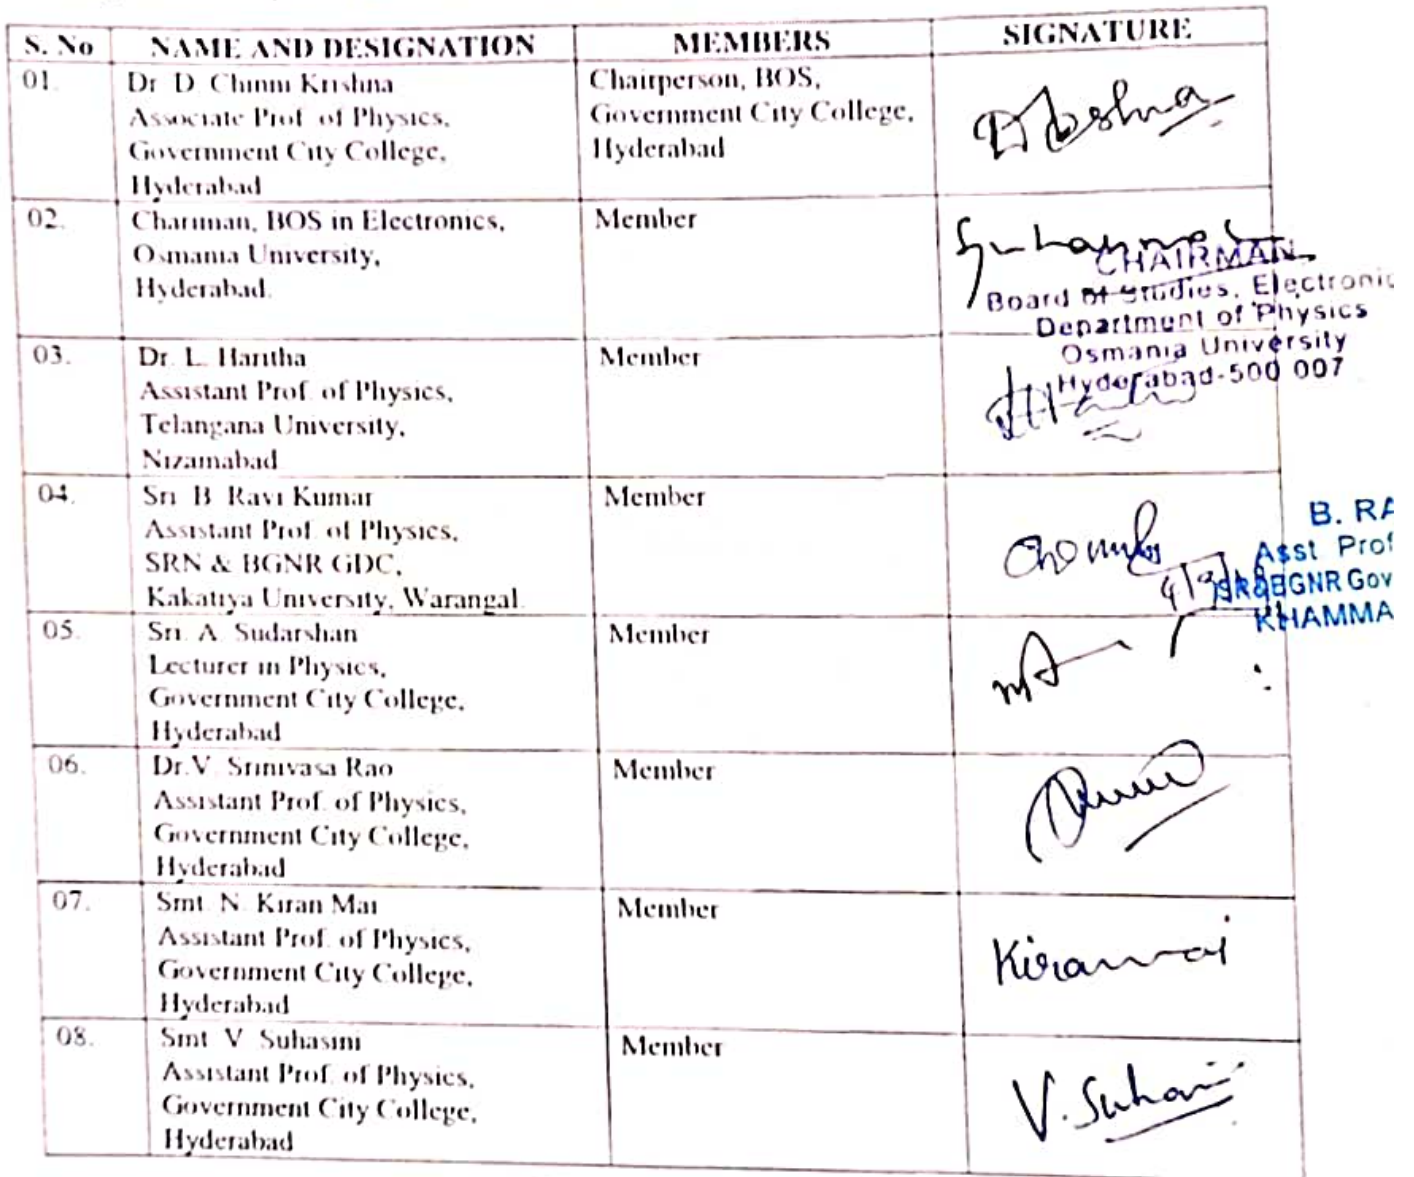 S. No NAME AND DESIGNATION MEMBERS SIGNATURE
01. Dr D. Chinni Krishna
Associate Prof. of Physics,
Government City College,
Hyderabad
Chairperson, BOS,
Government City College,
Hyderabad
02. Chairman, BOS in Electronics,
Osmania University,
Hyderabad.
Member
CHAIRMAN
Board of Studies, Electronic
Department of Physics
Osmania University
Hyderabad-500 007
03. Dr. L. Haritha
Assistant Prof. of Physics,
Telangana University,
Nizamabad
Member
04. Sri B Ravi Kumar
Assistant Prof. of Physics,
SRN & BGNR GDC,
Kakatiya University, Warangal.
Member
B. RA
Asst Prof
SR&BGNR Gov
KHAMMA
05. Sri. A. Sudarshan
Lecturer in Physics,
Government City College,
Hyderabad
Member
06. Dr.V. Srinivasa Rao
Assistant Prof. of Physics,
Government City College,
Hyderabad
Member
07. Smt. N. Kiran Mai
Assistant Prof. of Physics,
Government City College,
Hyderabad
Member
Kiranmai
08. Smt V Suhasini
Assistant Prof. of Physics,
Government City College,
Hyderabad
Member
V. Suhasini